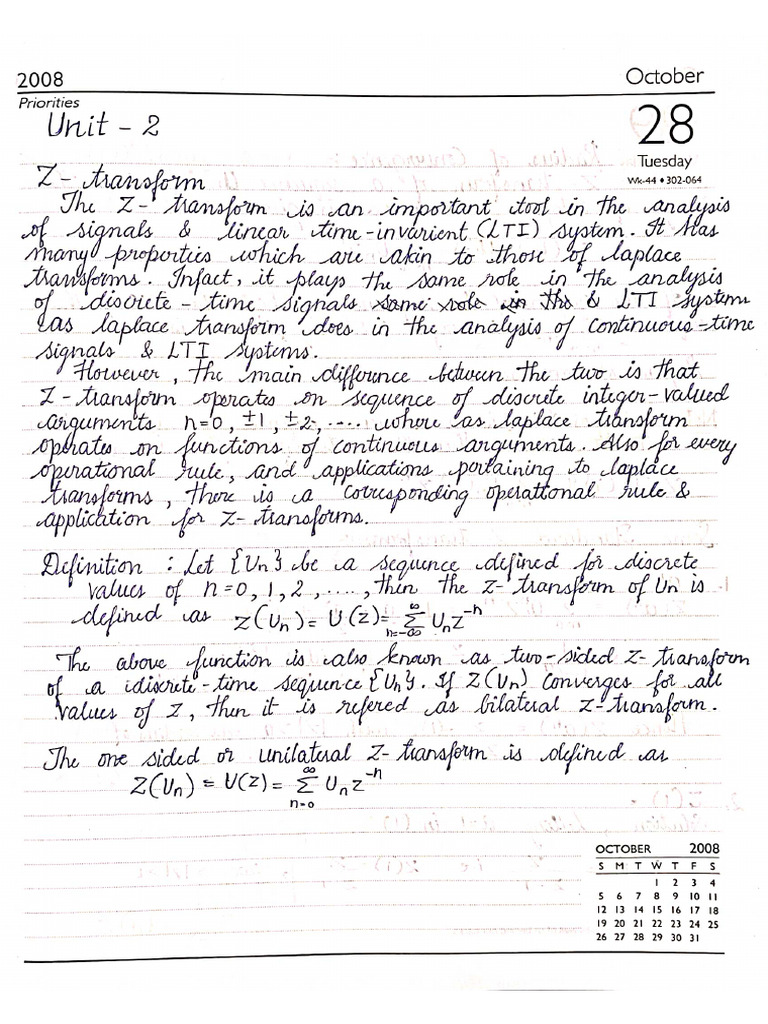 2008 October
Priorities
Unit - 2
28
Tuesday
Wk-44 • 302-064
Z - transform
The Z - transform is an important tool in the analysis
of signals & linear time-invarient (LTI) system. It has
many properties which are akin to those of laplace
transforms. Infact, it plays the same role in the analysis
of discrete - time signals same role in the & LTI system
as laplace transform does in the analysis of continuous-time
signals & LTI systems.
However, the main difference between the two is that
Z - transform operates on sequence of discrete integer-valued
arguments n=0, ±1, ±2, ..... where as laplace transform
operates on functions of continuous arguments. Also for every
operational rule, and applications pertaining to laplace
transforms, there is a corresponding operational rule &
application for Z-transforms.
Definition : Let {Un} be a sequence defined for discrete
values of n=0, 1, 2, ...., then the Z-transform of Un is
defined as Z(Un) = U(Z) = ∞ Σ n=-∞ Un z^-n
The above function is also known as two-sided Z-transform
of a discrete-time sequence {Un}. If Z(Un) converges for all
values of Z, then it is refered as bilateral Z-transform.
The one sided or unilateral Z-transform is defined as
Z(Un) = U(Z) = ∞ Σ n=0 Un z^-n
OCTOBER 2008
S M T W T F S
1 2 3 4
5 6 7 8 9 10 11
12 13 14 15 16 17 18
19 20 21 22 23 24 25
26 27 28 29 30 31